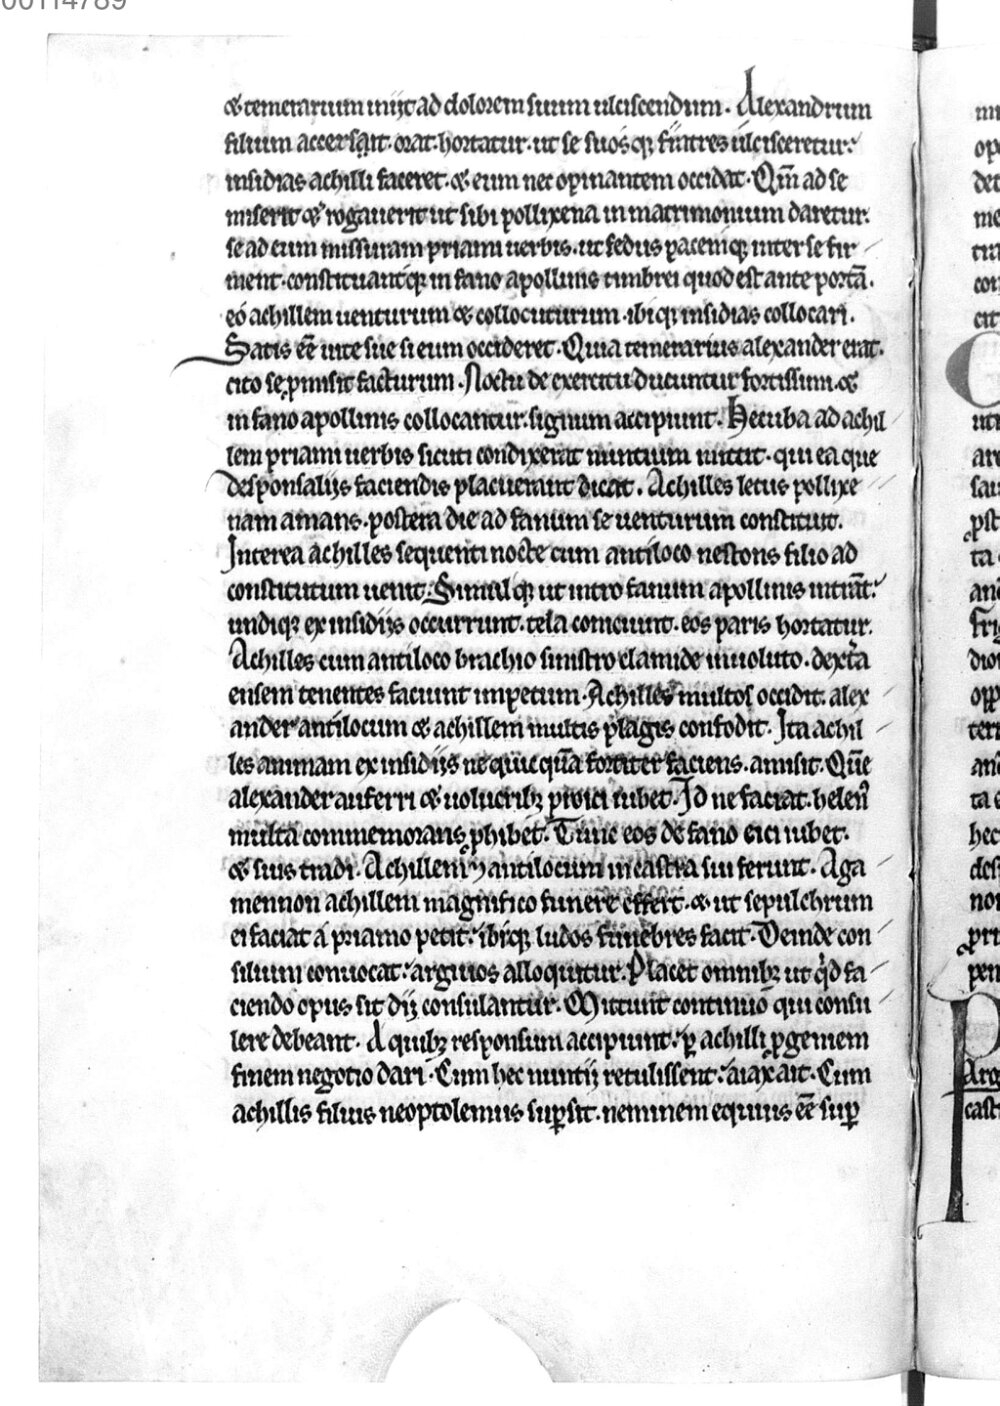 00114789
& temerarium iniit ad dolorem suum ulciscendum. Alexandrum
filium accersait. orat. hortatur. ut se suosq; fratres ulcisceretur.
insidias achilli faceret. & eum nec opinantem occidat. Qm̄ ad se
miserit & rogauerit ut sibi pollixena in matrimonium daretur.
se ad eum missuram priami uerbis. ut fedus pacemq; inter se fir
ment. constituantq; in fano apollinis timbrei quod est ante portā.
eo achillem uenturum & collocuturum. ibiq; insidias collocari.
Satis eē uite sue si eum occideret. Quia temerarius alexander erat.
cito se p̱misit facturum. Noctu de exercitu ducuntur fortissimi. &
in fano apollinis collocantur. signum accipiunt. Hecuba ad achil
lem priami uerbis sicuti condixerat nuntium mittit. qui ea que
desponsaliis faciendis placuerant dicat. Achilles letus pollixe
nam amans. postera die ad fanum se uenturum constituit.
Interea achilles sequenti nocte cum antiloco nestoris filio ad
constitutum uenit. Simulq; ut intro fanum apollinis intrāt.
undiq; ex insidiis occurrunt. tela coniciunt. eos paris hortatur.
Achilles cum antiloco brachio sinistro clamide inuoluto. dextra
ensem tenentes faciunt impetum. Achilles multos occidit. alex
ander antilocum & achillem multis plagis confodit. Ita achil
les animam ex insidiis nequicquā fortiter faciens. amisit. Quē
alexander auferri & uolucrib; proici iubet. Id ne faciat. helen9
multa commemorans phibet. Tunc eos de fano eici iubet.
& suis tradi. Achillem ⁊ antilocum in castra sui ferunt. Aga
mennon achillem magnifico funere effert. & ut sepulchrum
ei faciat a priamo petit. ibiq; ludos funebres facit. Deinde con
silium conuocat. argiuos alloquitur. Placet omnib; ut qd fa
ciendo opus sit dij consulantur. Mittunt continuo qui consu
lere debeant. A quib; responsum accipiunt. ꝑ achilli ꝓgeniem
finem negotio dari. Cum hec nuntij retulissent. aiax ait. Cum
achillis filius neoptolemus suꝑsit. neminem equius eē suꝑ